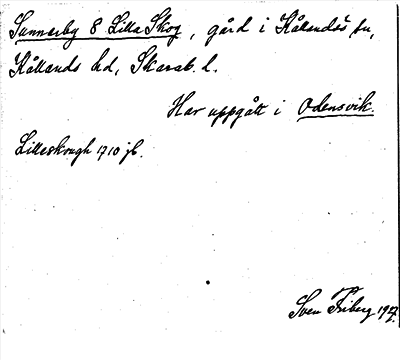 Sunnerby 8 Lilla Skog, gård i Kållandsö sn,
Kållands hd, Skarab. l.
Har uppgått i Odensvik.
Lilleskough 1710 jb.
Sven Friberg